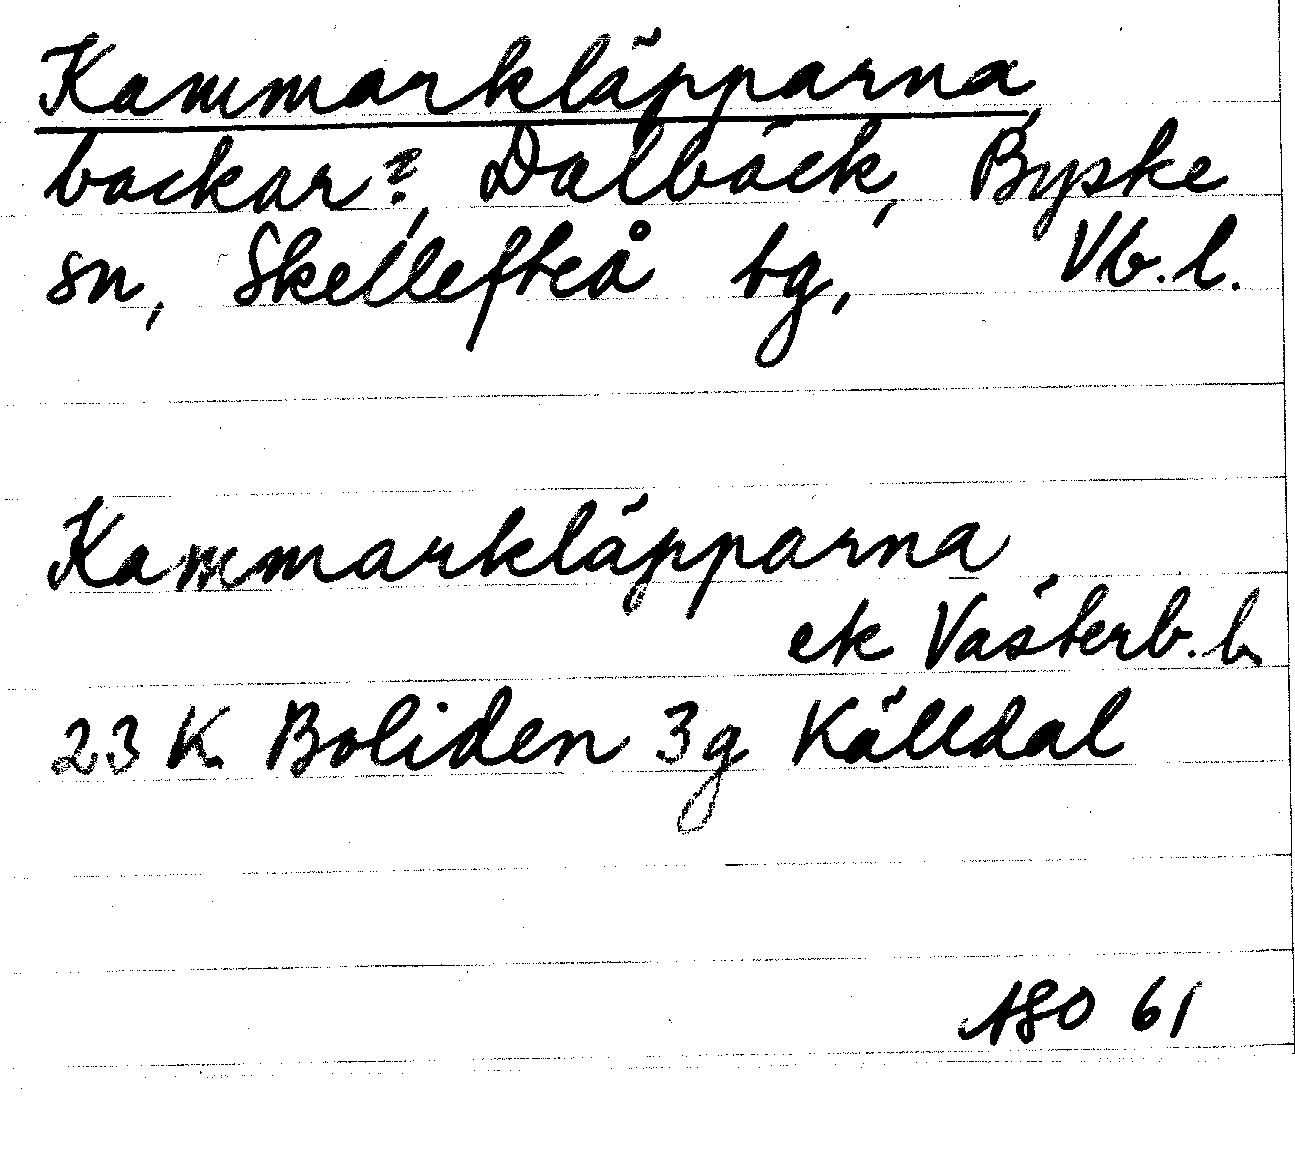 Kammarkläpparna,
backar?, Dalbäck, Byske
sn, Skellefteå tg, Vb. l.
Kammarkläpparna
ek Västerb. l.
23 K Boliden 3g Källdal
ASO 61